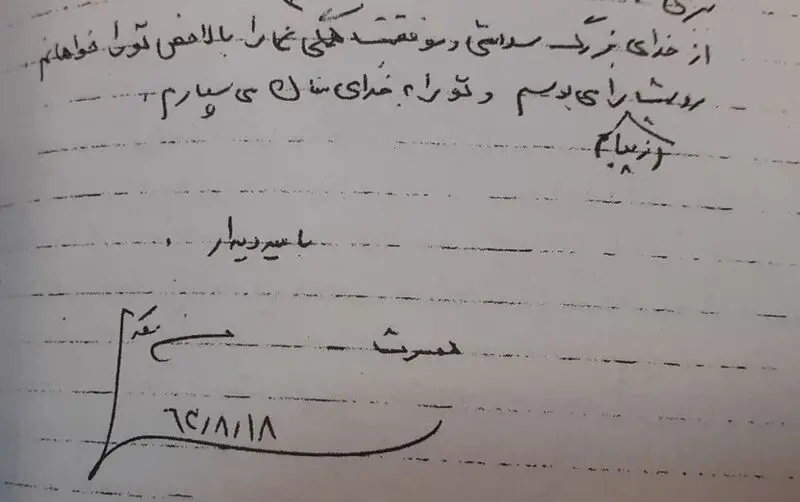 از خدای بزرگ سلامتی و موفقیت همگی شما را بالاخص تو را خواهانم
روی شما را می بوسم و تو را به خدای متعال می سپارم -
از پیام
با امید دیدار .
همسرت حسن
۶۴/۸/۱۸